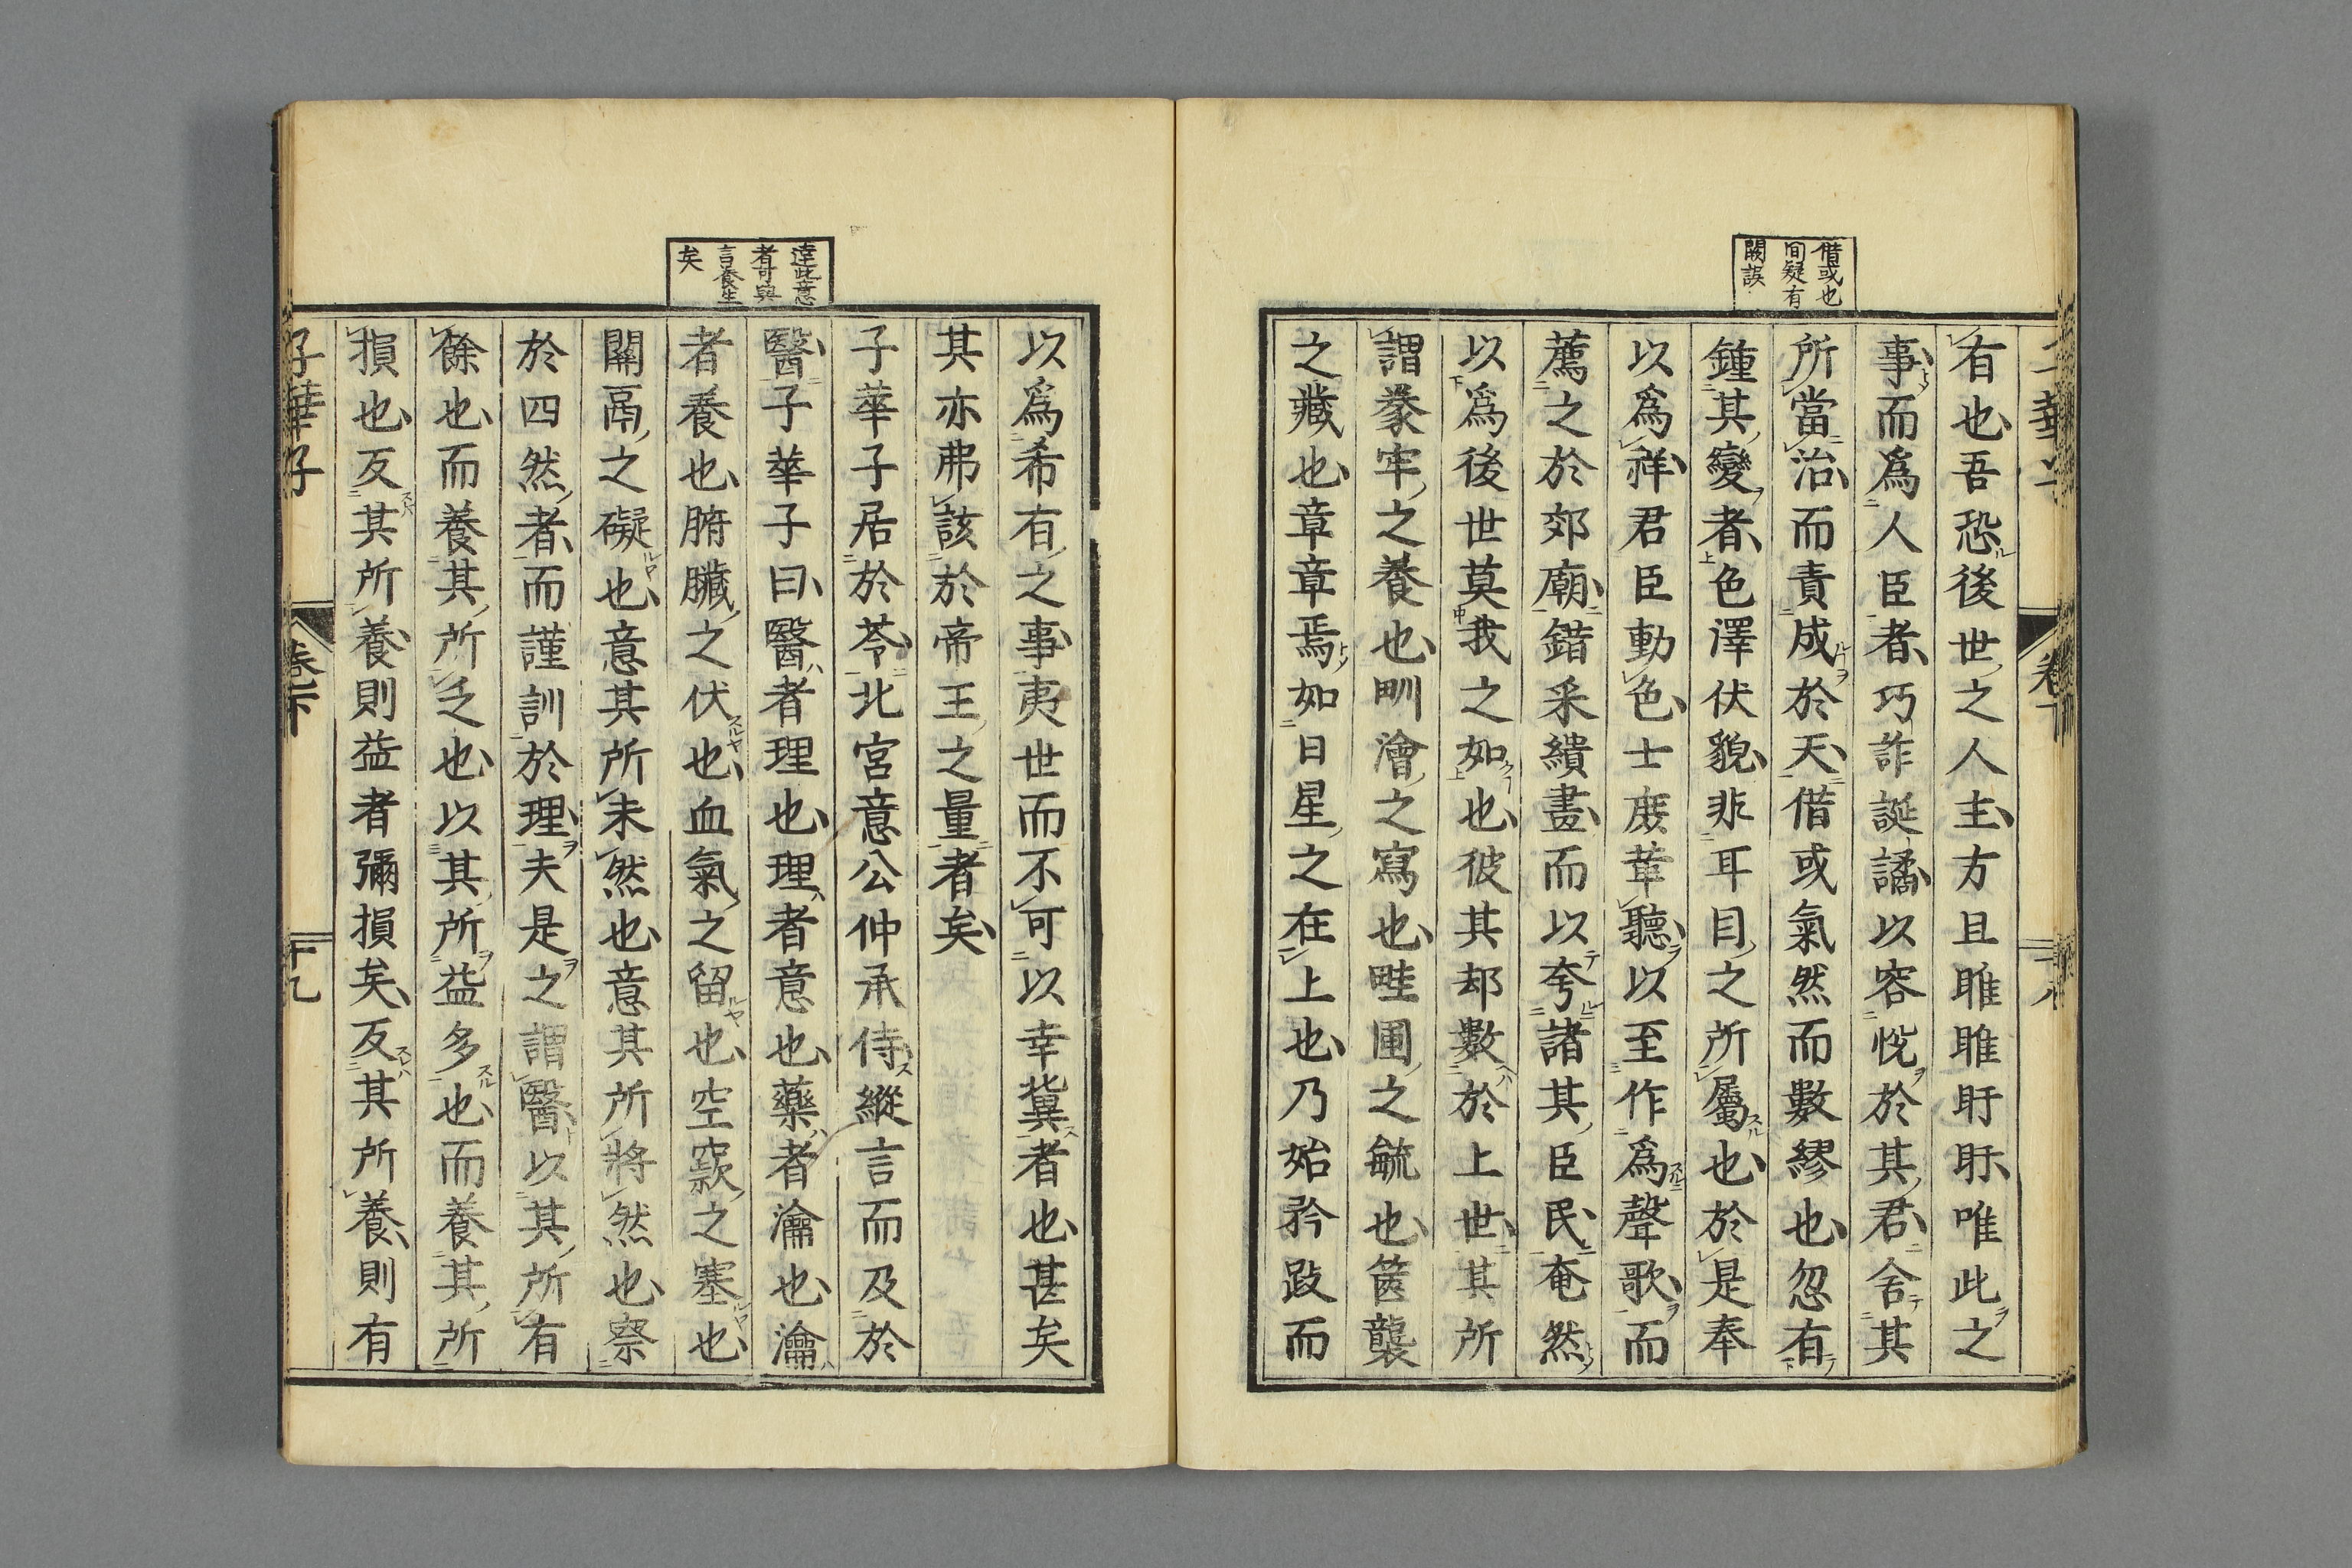 借或也
間疑有
闕誤
有也吾恐後世之人主方且睢睢盱盱唯此之
事而爲人臣者巧詐誕譎以容悅於其君舍其
所當治而責成於天借或氣然而數繆也忽有
鍾其變者色澤伏貌非耳目之所屬也於是奉
以爲祥君臣動色士庶革聽以至作爲聲歌而
薦之於郊廟錯采繢畫而以夸諸其臣民奄然
以爲後世莫我之如也彼其却數於上世其所
謂豢牢之養也甽澮之寫也畦圃之毓也篋襲
之藏也章章焉如日星之在上也乃始矜跂而
達此意
者可與
言養生
矣
以爲希有之事夷世而不可以幸冀者也甚矣
其亦弗該於帝王之量者矣
子華子居於苓北宮意公仲承侍縱言而及於
醫子華子曰醫者理也理者意也藥者瀹也瀹
者養也腑臟之伏也血氣之留也空竅之塞也
關鬲之礙也意其所未然也意其所將然也察
於四然者而謹訓於理夫是之謂醫以其所有
餘也而養其所乏也以其所益多也而養其所
損也反其所養則益者彌損矣反其所養則有
子華子
卷下
十九